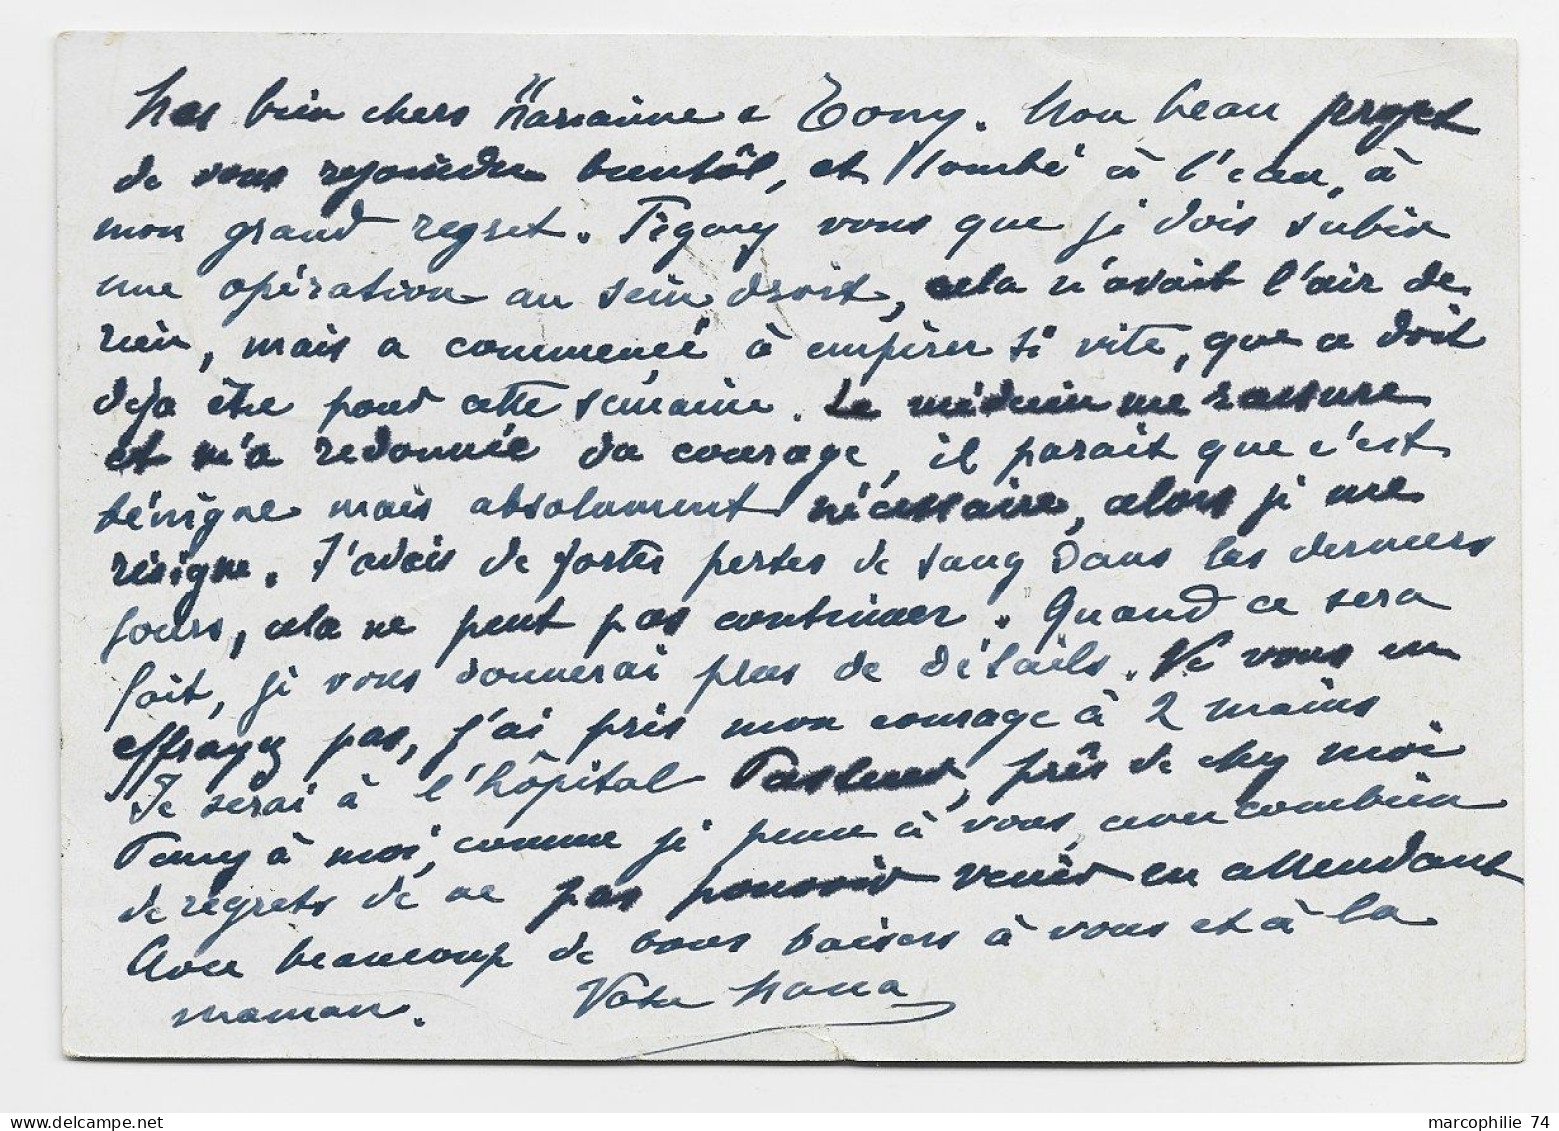 Mes bien chers Marianne & Tony. Mon beau projet
de vous rejoindre bientôt, est tombé à l'eau, à
mon grand regret. Figurez vous que je dois subir
une opération au sein droit, cela n'avait l'air de
rien, mais a commencé à empirer si vite, que ce doit
déjà être pour cette semaine. Le médecin me rassure
et m'a redonnée du courage, il parait que c'est
bénigne mais absolument nécessaire, alors je me
résigne. J'avais de fortes pertes de sang dans les derniers
jours, cela ne peut pas continuer. Quand ce sera
fait, je vous donnerai plus de détails. Ne vous en
effrayez pas, j'ai pris mon courage à 2 mains
Je serai à l'hôpital Pasteur, près de chez moi
Pensez à moi, comme je pense à vous, avec combien
de regrets de ne pas pouvoir venir en attendant
Avec beaucoup de bons baisers à vous et à la
maman. Votre Nana
marcophilie 74